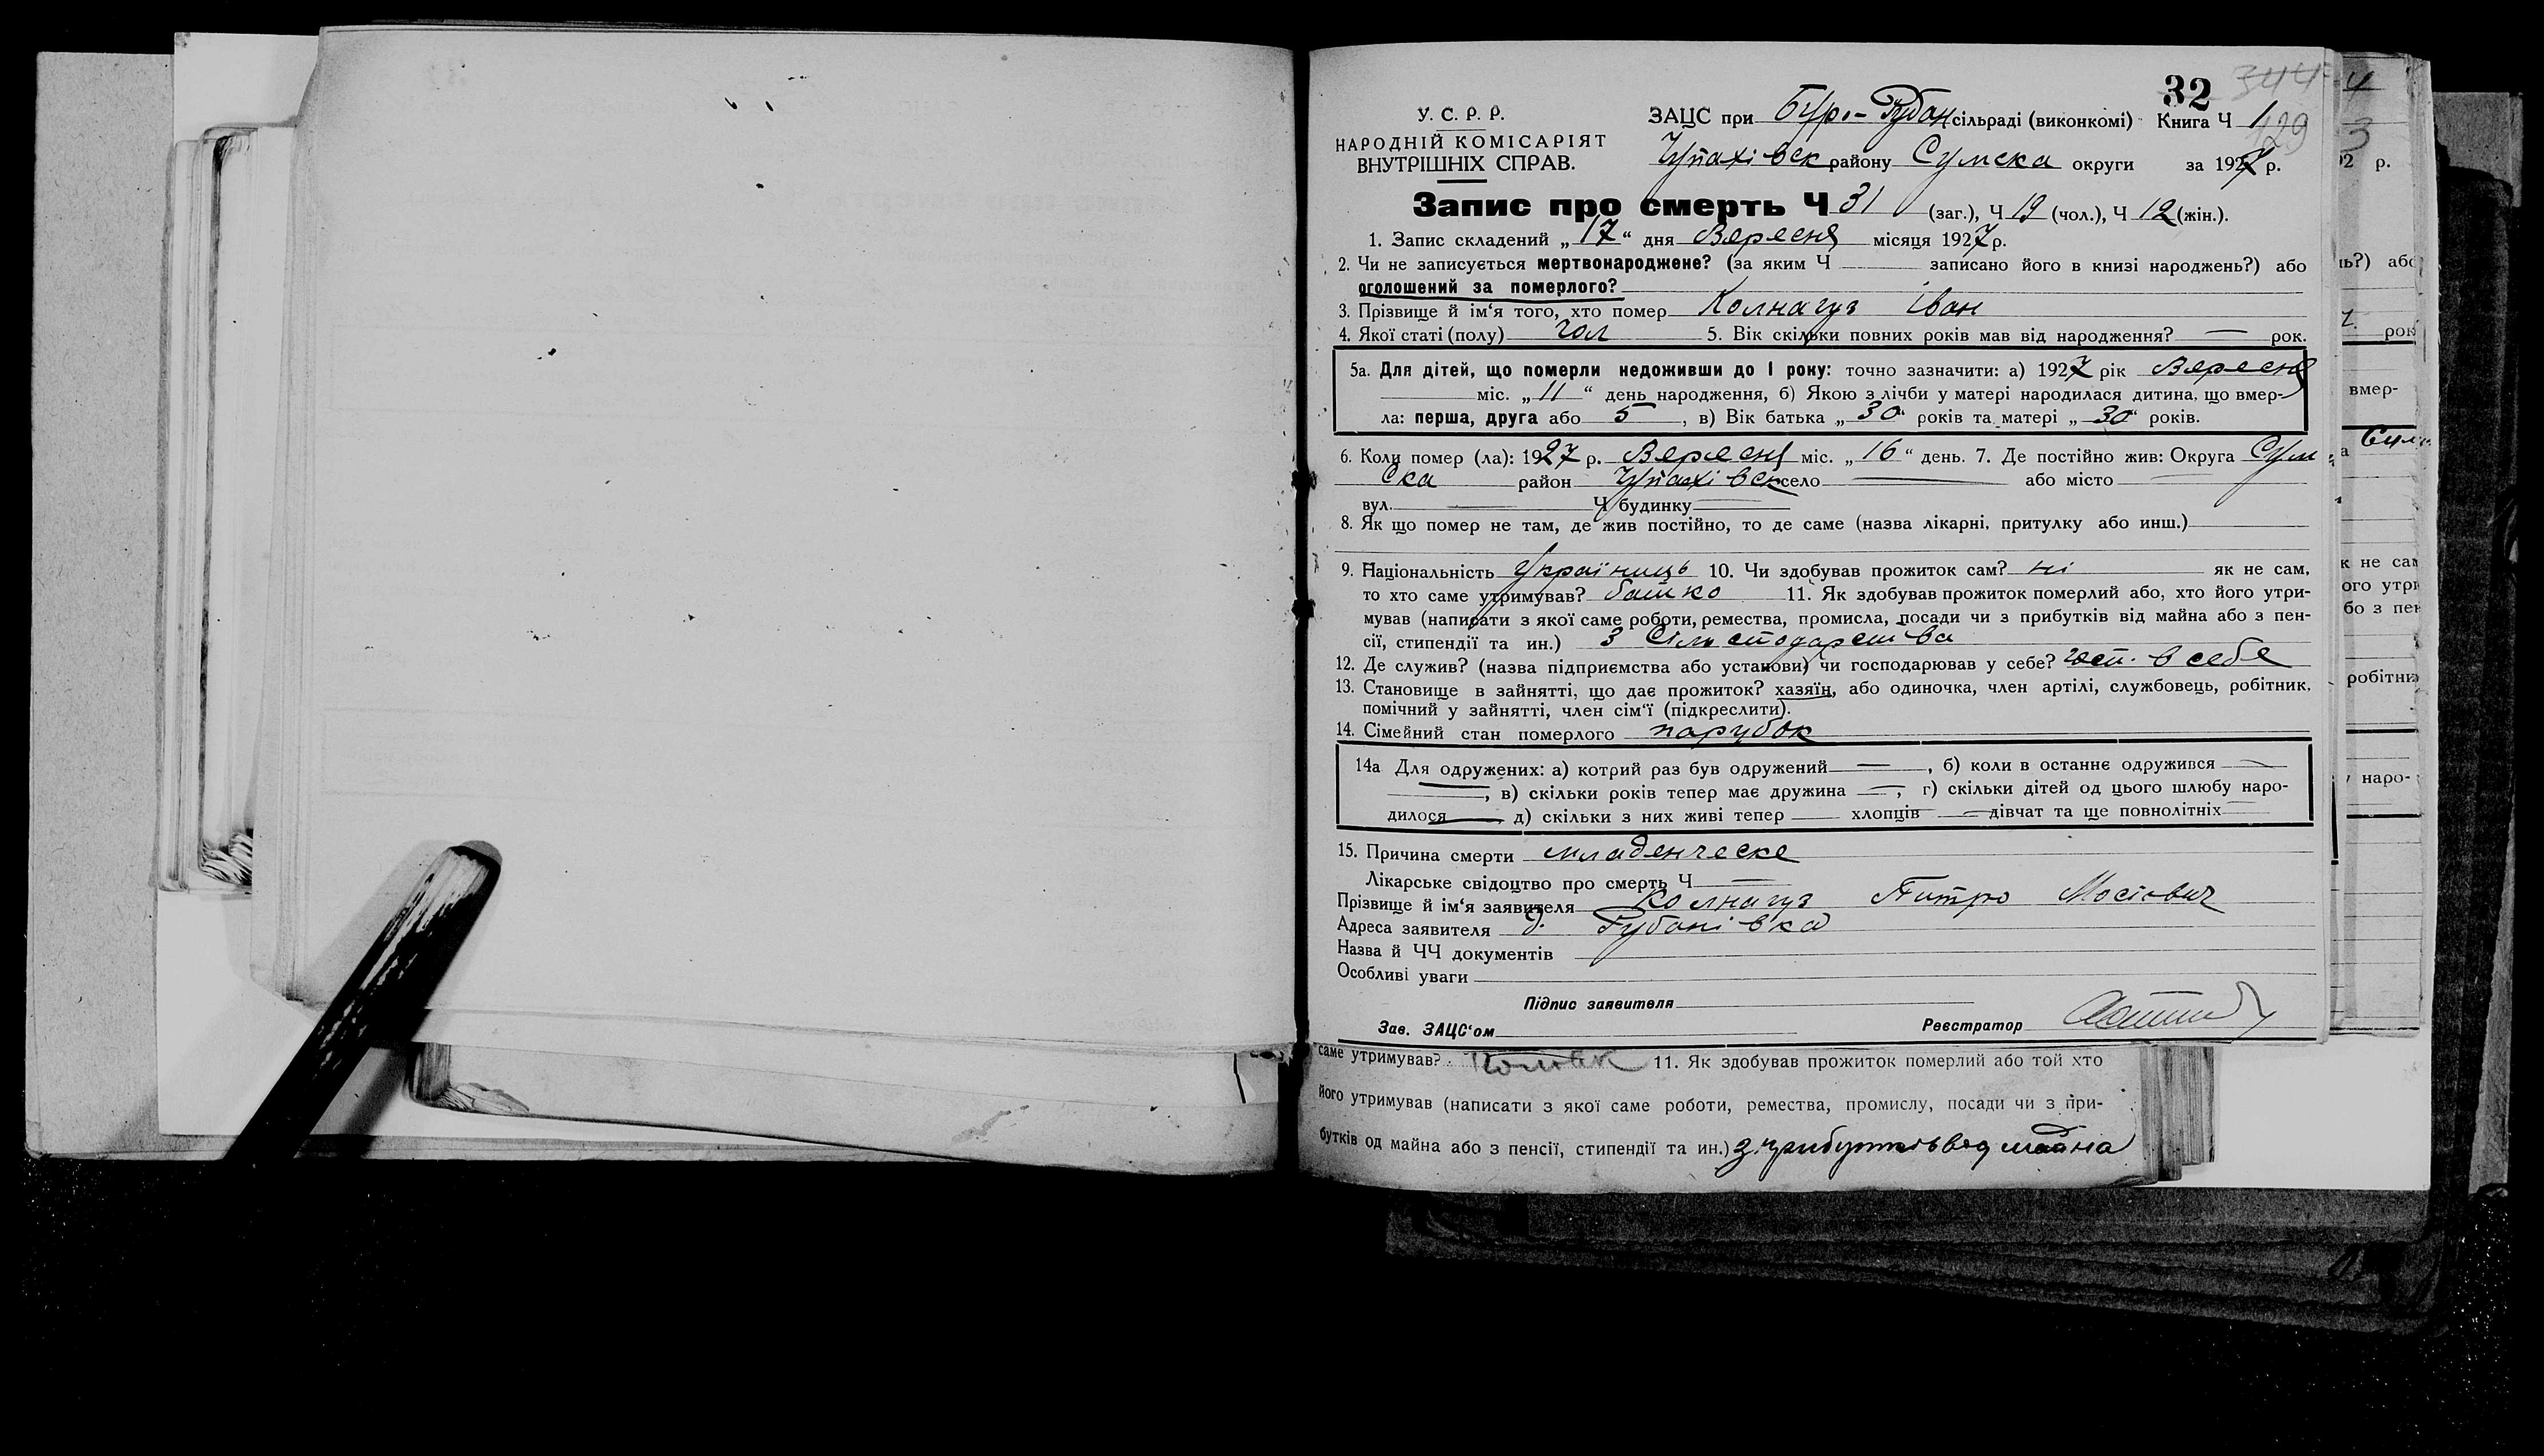 32 344
У. С. Р. Р.
НАРОДНІЙ КОМІСАРІЯТ
ВНУТРІШНІХ СПРАВ.
ЗАЦС при Буро-Рубан сільраді (виконкомі) Книга Ч 1
129
Чупахівск району Сумска округи за 1927 р.
Запис про смерть Ч 31 (заг.), Ч 19 (чол.), Ч 12 (жін.).
1. Запис складений „17“ дня Вересня місяця 1927 р.
2. Чи не записується мертвонароджене? (за яким Ч записано його в книзі народжень?) або
оголошений за померлого?
3. Прізвище й ім‘я того, хто помер Колнагуз Іван
4. Якої статі (полу) чол 5. Вік скільки повних років мав від народження? — рок.
5а. Для дітей, що померли недоживши до 1 року: точно зазначити: а) 1927 рік Вересня
міс. „11“ день народження, б) Якою з лічби у матері народилася дитина, що вмер-
ла: перша, друга або 5, в) Вік батька „30“ років та матері „30“ років.
6. Коли помер (ла): 1927 р. Вересня міс. „16“ день. 7. Де постійно жив: Округа Сум
ска район Чупахівск село — або місто —
вул. — Ч будинку —
8. Як що помер не там, де жив постійно, то де саме (назва лікарні, притулку або инш.)
9. Національність Українець 10. Чи здобував прожиток сам? ні як не сам,
то хто саме утримував? батько 11. Як здобував прожиток померлий або, хто його утри-
мував (написати з якої саме роботи, ремества, промисла, посади чи з прибутків від майна або з пен-
сії, стипендії та ин.) З
12. Де служив? (назва підприємства або установи) чи господарював у себе? госп. в себе
13. Становище в зайнятті, що дає прожиток? хазяїн, або одиночка, член артілі, службовець, робітник,
помічний у зайнятті, член сім‘ї (підкреслити).
14. Сімейний стан померлого парубок
14а Для одружених: а) котрий раз був одружений —, б) коли в останнє одружився —
—, в) скільки років тепер має дружина —, г) скільки дітей од цього шлюбу наро-
дилося — д) скільки з них живі тепер — хлопців — дівчат та ще повнолітніх —
15. Причина смерти младенческе
Лікарське свідоцтво про смерть Ч —
Прізвище й ім‘я заявителя Колнагуз Питро Мосієвич
Адреса заявителя д. Рубанівка
Назва й ЧЧ документів
Особливі уваги
Підпис заявителя
Зав. ЗАЦС‘ом Реєстратор
саме утримував? 11. Як здобував прожиток померлий або той хто
його утримував (написати з якої саме роботи, ремества, промислу, посади чи з при-
бутків од майна або з пенсії, стипендії та ин.) з прибутків вод майна
4
3
92 р.
нь?) або
рок
вмер-
к не сам
ого утри
бо з пен
робітник
наро-